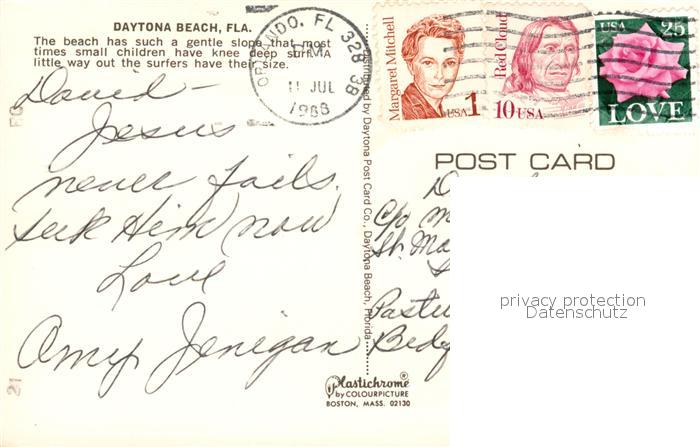 DAYTONA BEACH, FLA.
The beach has such a gentle slope that most
times small children have knee deep surf. A
little way out the surfers have their size.
ORLANDO, FL 328 3B
PM
11 JUL
1988
Margaret Mitchell
USA 1
Red Cloud
10 USA
USA 25
LOVE
David -
Jesus
never fails.
Seek Him now
Love
Amy Jenigan
Distributed by Daytona Post Card Co., Daytona Beach, Florida
POST CARD
D
c/o M
St. Ma
Bedf
privacy protection
Datenschutz
Plastichrome®
by COLOURPICTURE
BOSTON, MASS. 02130
21